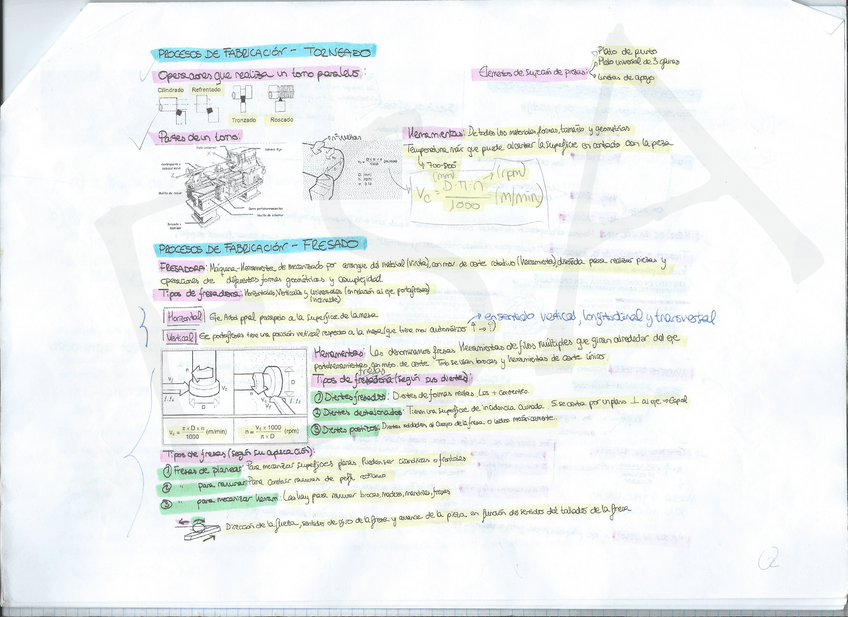 PROCESOS DE FABRICACIÓN - TORNEADO
Operaciones que realiza un torno paralelo:
Elementos de sujeción de piezas:
Plato de punto
Plato universal de 3 garras
Lunetas de apoyo
Cilindrado Refrentado
Tronzado Roscado
Partes de un torno:
Herramientas: De todos los materiales, formas, tamaño y geometrías
Temperatura máx que puede alcanzar la superficie en contacto con la pieza
700-800
(mm) (rpm)
Vc = D·π·n / 1000 (m/min)
PROCESOS DE FABRICACIÓN - FRESADO
FRESADORA: Máquina-Herramienta de mecanizado por arranque de material (viruta), con mov. de corte rotativo (Herramienta), diseñada para realizar piezas y
operaciones de diferentes formas geométricas y complejidad
Tipos de fresadora: Horizontales, Verticales y universales (en relación al eje portafresas)
Horizontal Eje fresa ppal paralelo a la superficie de la mesa
en sentido vertical, longitudinal y transversal
Vertical Eje portafresas tiene una posición vertical respecto a la mesa que tiene mov automático
Herramientas: Las denominamos fresas. Herramientas de filos múltiples que giran alrededor del eje
portaherramientas con mto. de corte. Tmb se usan brocas y herramientas de corte único
fresas
Tipos de fresadora (según sus dientes):
1 Dientes fresados: Dientes de formas rectas. Los + corrientes.
2 Dientes destalonados: Tienen una superficie de incidencia curvada. Si se corta por un plano ⊥ al eje → Espiral
3 Dientes postizos: Dientes soldados al cuerpo de la fresa o unidos mecánicamente
vc = π × D × n / 1000 (m/min)
n = vc × 1000 / π × D (rpm)
Tipos de fresas (según su aplicación):
1 Fresas de planear: Para mecanizar superficies planas. Pueden ser cilíndricas o frontales
2 " para ranurar: Para construir ranuras de perfil
3 " para mecanizar herram: Las hay para ranurar brocas, machos, mandriles, fresas
Dirección de la fuerza, sentidos de giro de la fresa y avance de la pieza en función del sentido del tallado de la fresa
2